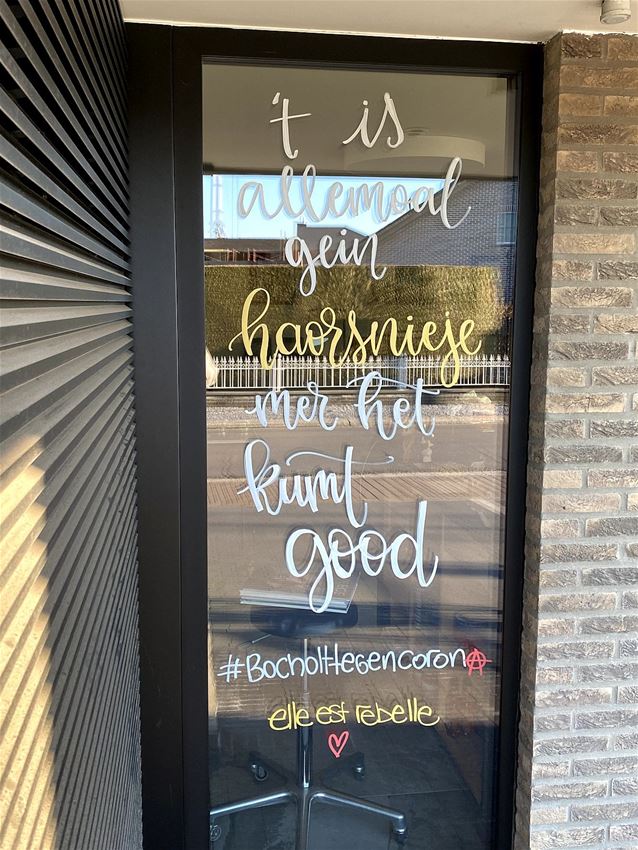 't is
allemoal
gein
haorsnieje
mer het
kumt
good
#Bocholttegencorona
elle est rebelle